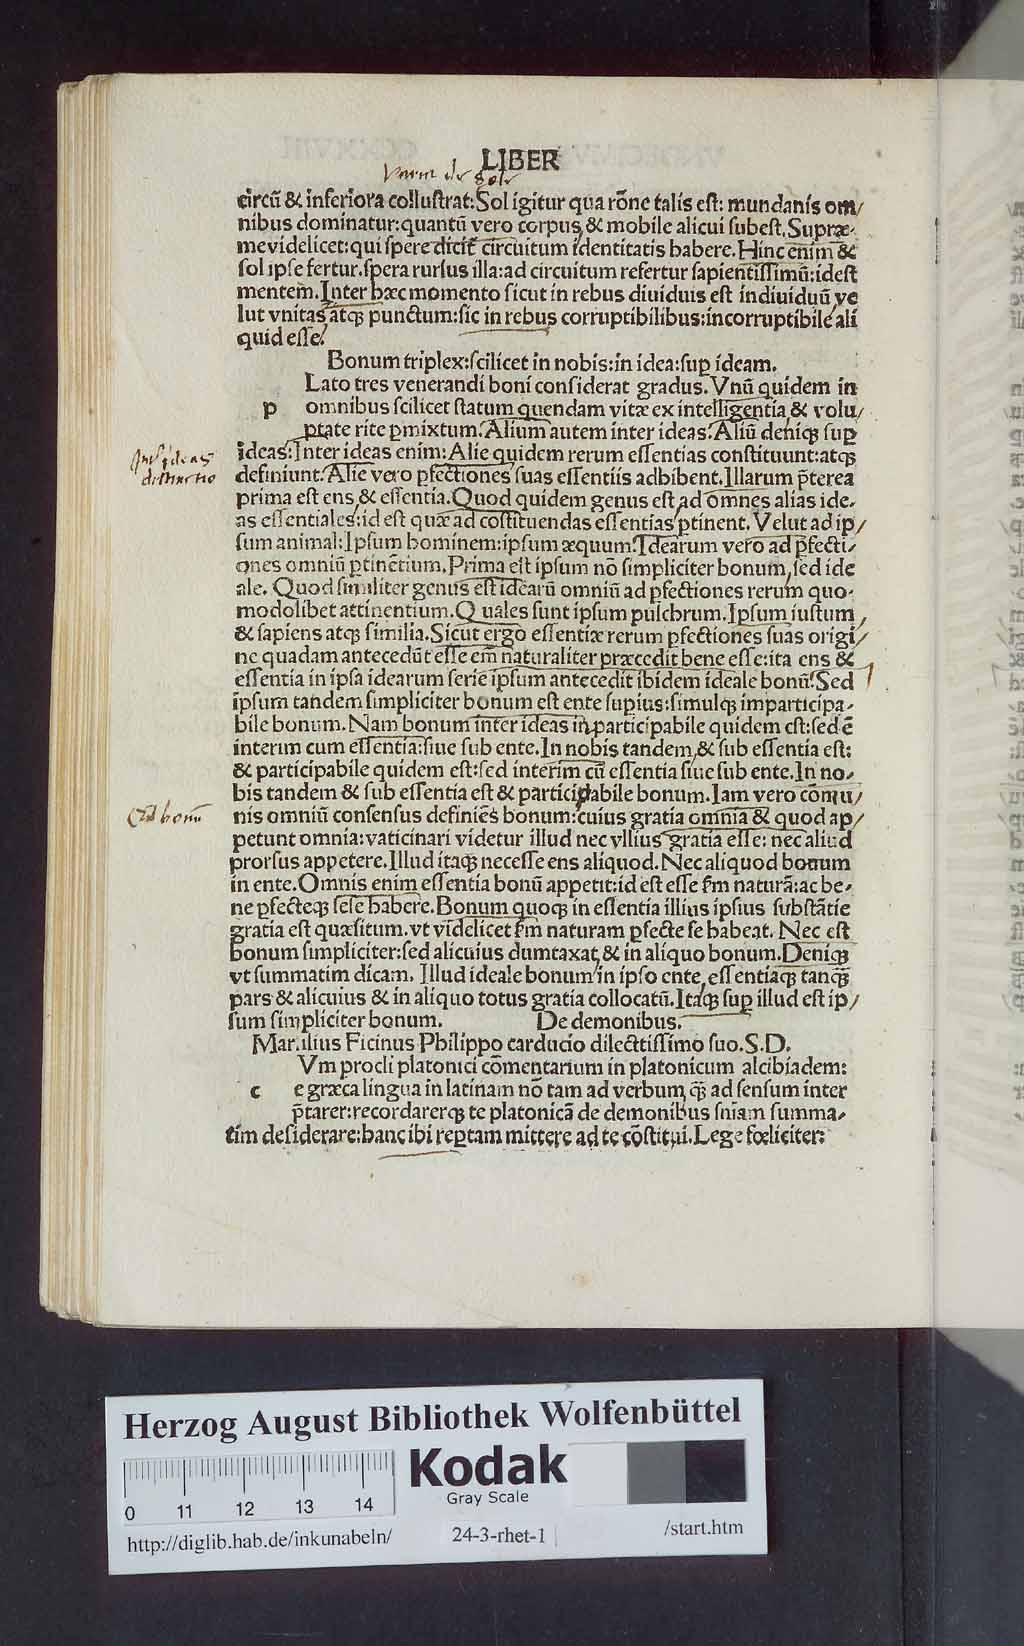 LIBER
circũ & inferiora collustrat: Sol igitur qua rõne talis est: mundanis om/
nibus dominatur: quantũ vero corpus & mobile alicui subest. Supræ-
me videlicet: qui spere dicit̃ circuitum identitatis habere. Hinc enim &
sol ipse fertur. spera rursus illa: ad circuitum refertur sapientissimũ: id est
mentem. Inter hæc momento sicut in rebus diuiduis est indiuiduũ ve
lut vnitas atqꝫ punctum: sic in rebus corruptibilibus: incorruptibile ali
quid esse.
Bonum triplex: scilicet in nobis: in idea: suꝑ ideam.
Lato tres venerandi boni considerat gradus. Vnũ quidem in
p omnibus scilicet statum quendam vitæ ex intelligentia & volu/
ptate rite ꝑmixtum. Alium autem inter ideas. Aliũ deniqꝫ suꝑ
ideas: Inter ideas enim: Alie quidem rerum essentias constituunt: atqꝫ
definiunt. Alie vero ꝑfectiones suas essentiis adhibent. Illarum p̃terea
prima est ens & essentia. Quod quidem genus est ad omnes alias ide-
as essentiales: id est quæ ad cõstituendas essentias ꝑtinent. Velut ad ip/
sum animal: Ipsum hominem: ipsum æquum. Idearum vero ad ꝑfecti-
ones omniũ ꝑtinẽtium. Prima est ipsum nõ simpliciter bonum sed ide
ale. Quod similiter genus est idearũ omniũ ad ꝑfectiones rerum quo-
modolibet attinentium. Quales sunt ipsum pulchrum. Ipsum iustum
& sapiens atqꝫ similia. Sicut ergo essentiæ rerum ꝑfectiones suas origi/
ne quadam antecedũt esse em̃ naturaliter præcedit bene esse: ita ens &
essentia in ipsa idearum serie ipsum antecedit ibidem ideale bonũ. Sed
ipsum tandem simpliciter bonum est ente supius: simulqꝫ imparticipa-
bile bonum. Nam bonum inter ideas inparticipabile quidem est: sed ẽ
interim cum essentia: siue sub ente. In nobis tandem & sub essentia est:
& participabile quidem est: sed interim cũ essentia siue sub ente. In no-
bis tandem & sub essentia est & participabile bonum. Iam vero cõmu/
nis omniũ consensus definiẽs bonum: cuius gratia omnia & quod ap/
petunt omnia: vaticinari videtur illud nec vllius gratia esse: nec aliud
prorsus appetere. Illud itaqꝫ necesse ens aliquod. Nec aliquod bonum
in ente. Omnis enim essentia bonũ appetit: id est esse fm̃ naturã: ac be-
ne ꝑfecteqꝫ sese habere. Bonum quoqꝫ in essentia illius ipsius substãtie
gratia est quæsitum. vt videlicet fm̃ naturam ꝑfecte se habeat. Nec est
bonum simpliciter: sed alicuius dumtaxat & in aliquo bonum. Deniqꝫ
vt summatim dicam. Illud ideale bonum in ipso ente essentiaqꝫ tanqꝫ̃
pars & alicuius & in aliquo totus gratia collocatũ. Itaqꝫ suꝑ illud est ip/
sum simpliciter bonum. De demonibus.
Marsilius Ficinus Philippo carducio dilectissimo suo. S.D.
Vm procli platonici cõmentarium in platonicum alcibiadem:
c e græca lingua in latinam nõ tam ad verbum qꝫ̃ ad sensum inter
p̃tarer: recordarerqꝫ te platonicã de demonibus sniam summa-
tim desiderare: hanc ibi reꝑtam mittere ad te cõstitui. Lege fœliciter:
Herzog August Bibliothek Wolfenbüttel
Kodak
Gray Scale
0 11 12 13 14
http://diglib.hab.de/inkunabeln/ 24-3-rhet-1 /start.htm